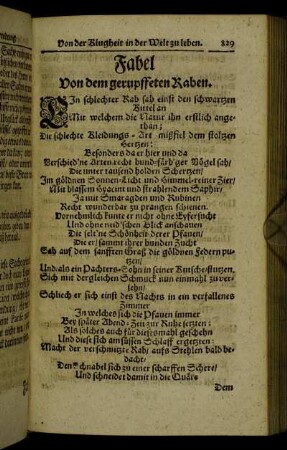 Von der Klugheit in der Welt zu leben. 829
Fabel
Von dem gerupffeten Raben.
EIn schlechter Rab sah einst den schwartzen
Kittel an
Mit welchem die Natur ihn erstlich ange-
than;
Die schlechte Kleidungs-Art mißfiel dem stoltzen
Hertzen:
Besonders da er hier und da
Verschied'ne Arten recht bund-färb'ger Vögel sah/
Die unter tausend holden Schertzen/
Im göldnen Sonnen-Licht und Himmel-reiner Zier/
Mit blassem Hyacint und strahlendem Saphir/
Ja mit Smaragden und Rubinen
Recht wunderbar zu prangen schienen.
Vornehmlich kunte er nicht ohne Eyfersucht
Und ohne neid'schen Blick anschauen
Die selt'ne Schönheit derer Pfauen/
Die er/ sammt ihrer bunden Zucht
Sah auf dem sanfften Graß die göldnen Federn pu-
tzen/
Und/ als ein Pachters-Sohn in seiner Kutsche/ stutzen.
Sich mit dergleichen Schmuck nun einmahl zu ver-
sehn/
Schliech er sich einst des Nachts in ein verfallenes
Zimmer
In welches sich die Pfauen immer
Bey später Abend-Zeit zur Ruhe setzten:
Als solches auch für diesesmahl geschehn
Und diese sich am süssen Schlaff ergetzten:
Macht der verschmitzte Rab/ aufs Stehlen bald be-
dacht/
Den Schnabel sich zu einer scharffen Schere/
Und schneidet damit in die
Dem